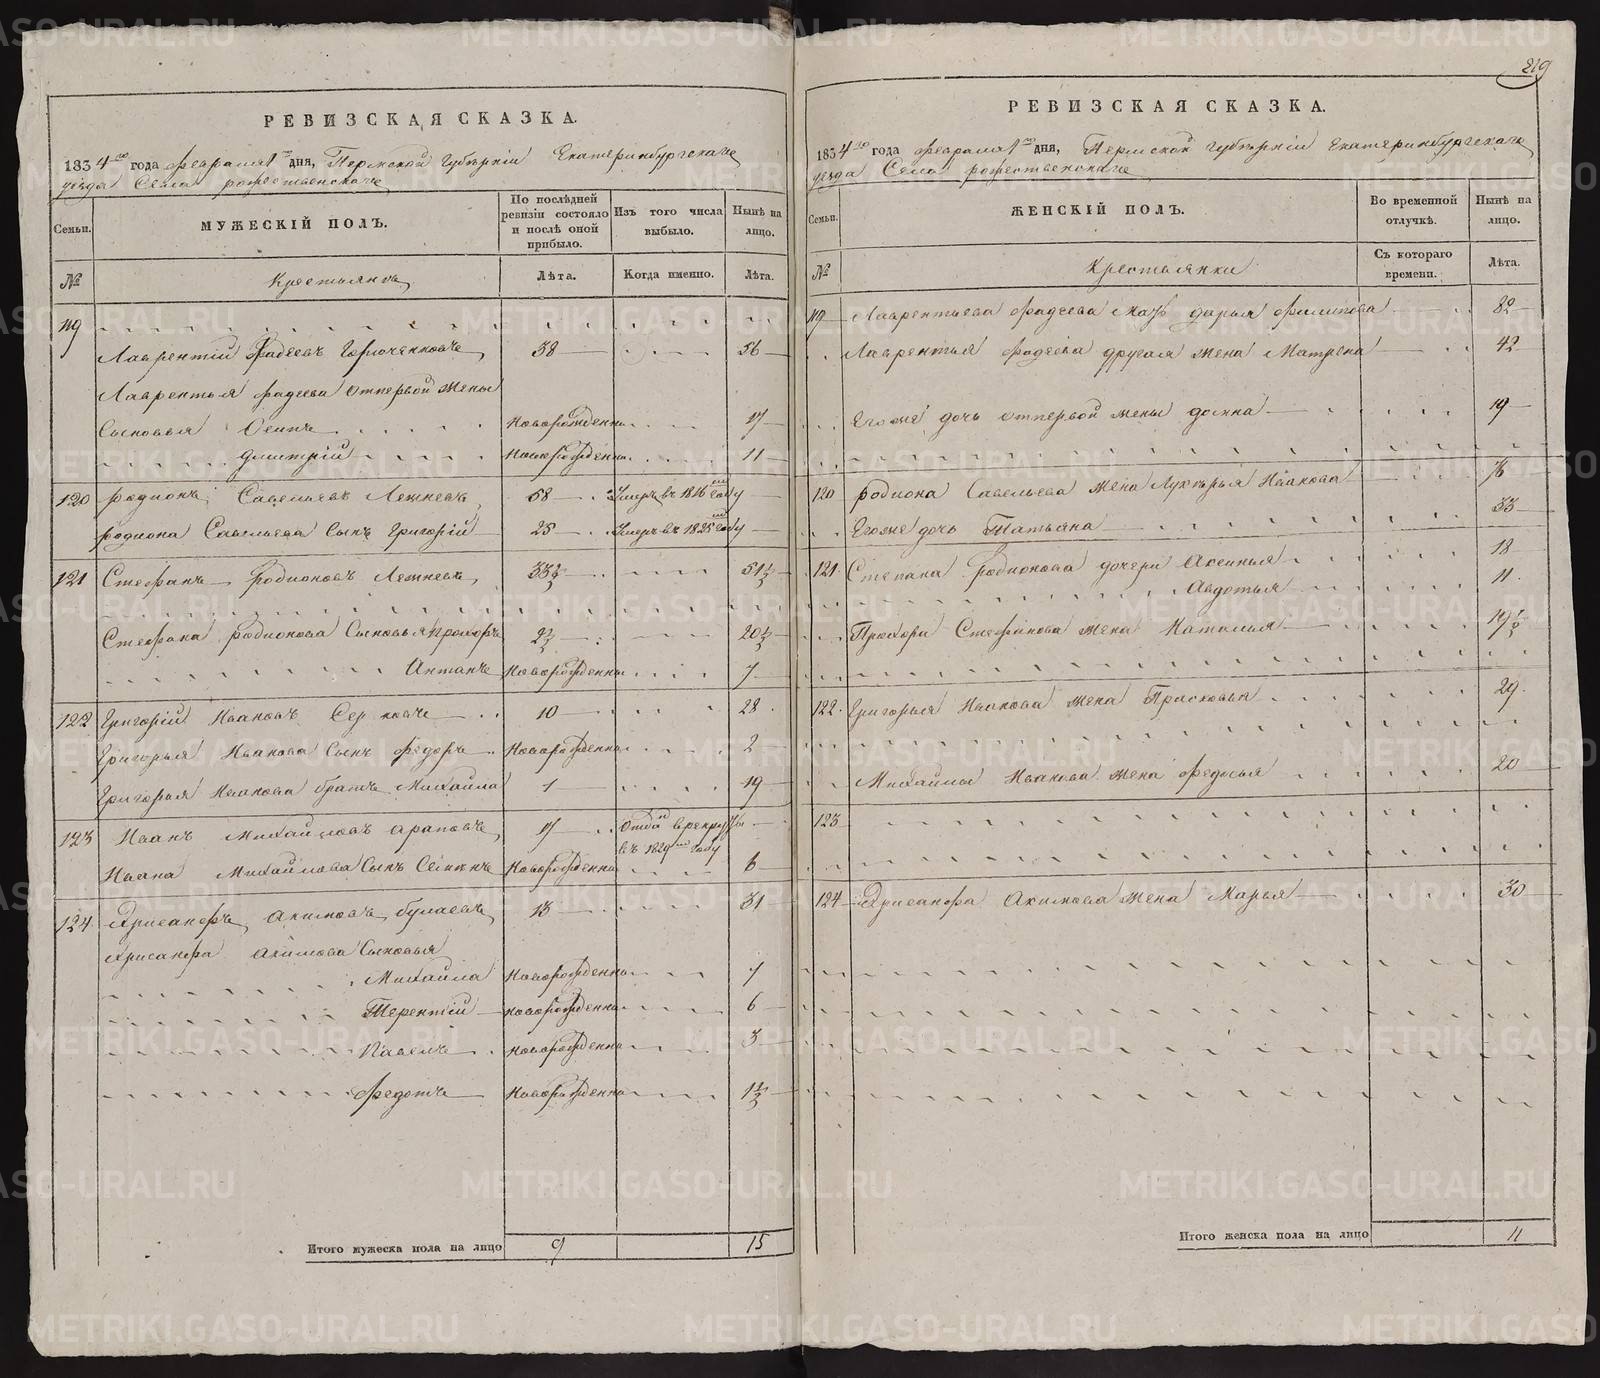 219
РЕВИЗСКАЯ СКАЗКА.
1834го года февраля 1го дня, Пермской губѣрніи Екатеринбургскаго
уезда Села рожественскаго
Семьи.
МУЖЕСКІЙ ПОЛЪ.
По послѣдней ревизіи состояло и послѣ оной прибыло.
Изъ того числа выбыло.
Нынѣ на лицо.
№
Крестьянъ
Лѣта.
Когда именно.
Лѣта.
119
Лаврентій Фадеевъ 38 56
Лаврентья фадеева отпервой жены
Сыновья Осипъ новорожденны 17
дмитрій новорожденны 11
120 родионъ Савельевъ Лежневъ 58 Умеръ въ 1816 году
родиона Савельева Сынъ григорій 25 Умеръ въ 1825 году
121 Стефанъ родионовъ Лежневъ 33½ 51½
Стефана родионова Сыновья прохоръ 2½ 20½
Антипъ новорожденны 7
122 Григорій Ивановъ 10 28
Григорья Иванова Сынъ федоръ новорожденны 2
Григорья Иванова братъ Михайла 1 19
123 Иванъ Михайловъ араповъ 17 Отданъ врекруты
въ 1829 году
Ивана Михайлова Сынъ новорожденны 6
124 Хрисанфъ Акимовъ булаевъ 13 31
Хрисанфа акимова Сыновья
Михайла новорожденны 7
Терентій новорожденны 6
Павелъ новорожденны 3
федотъ новорожденны 1½
Итого мужеска пола на лицо 9 15
РЕВИЗСКАЯ СКАЗКА.
1834го года февраля 1го дня, Пермской губѣрніи Екатеринбургскаго
уезда Села рожественскаго
Семьи.
ЖЕНСКІЙ ПОЛЪ.
Во временной отлучкѣ.
Нынѣ на лицо.
№
Крестьянки
Съ котораго времени.
Лѣта.
119 Лаврентьева фадеева мать дарья филипова 82
Лаврентья фадеева другая жена Матрена 42
Егоже дочь отпервой жены 19
120 родиона Савельева жена Лукерья Иванова 76
Егоже дочь Татьяна 33
121 Степана родионова дочери Аксинья 18
Авдотья 11
Прохора Стефанова жена Наталья 19½
122 Григорья Иванова жена Прасковья 29
Михайлы Иванова жена федосья 20
123
124 Хрисанфа Акимова жена Марья 30
Итого женска пола на лицо 11
METRIKI.GASO-URAL.RU